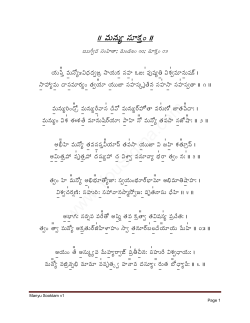 ॥ మన్యు సూక్తం ॥
ఋగ్వేద సంహితా; మండలం 10; సూక్తం 83
యస్తే మన్యోఽవిధద్వజ్ర సాయక సహ ఓజః పుష్యతి విశ్వమానుషక్ ।
సాహ్యామ దాసమార్యం త్వయా యుజా సహస్కృతేన సహసా సహస్వతా ॥ ౧ ॥
మన్యురింద్రో మన్యురేవాస దేవో మన్యుర్హోతా వరుణో జాతవేదాః ।
మన్యుం విశ ఈళతే మానుషీర్యాః పాహి నో మన్యో తపసా సజోషాః ॥ ౨ ॥
అభీహి మన్యో తవసస్తవీయాన్ తపసా యుజా వి జహి శత్రూన్ ।
అమిత్రహా వృత్రహా దస్యుహా చ విశ్వా వసూన్యా భరా త్వం నః ॥ ౩ ॥
త్వం హి మన్యో అభిభూత్యోజాః స్వయంభూర్భామో అభిమాతిషాహః ।
విశ్వచర్షణిః సహురిః సహావానస్మాస్వోజః పృతనాసు ధేహి ॥ ౪ ॥
అభాగః సన్నప పరేతో అస్మి తవ క్రత్వా తవిషస్య ప్రచేతః ।
తం త్వా మన్యో అక్రతుర్జిహీళాహం స్వా తనూర్బలదేయాయ మేహి ॥ ౫ ॥
అయం తే అస్మ్యుప మేహ్యర్వాఙ్ ప్రతీచీనః సహురే విశ్వధాయః ।
మన్యో వజ్రిన్నభి మామా వవృత్స్వ హనావ దస్యూన్ ఋత బోధ్యాపేః ॥ ౬ ॥
Manyu Sooktam v1
Page 1